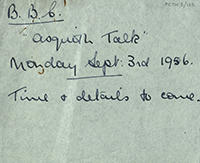 B.B.C.
"Asquith Talk"
Monday Sept: 3rd 1956.
Time & details to come.